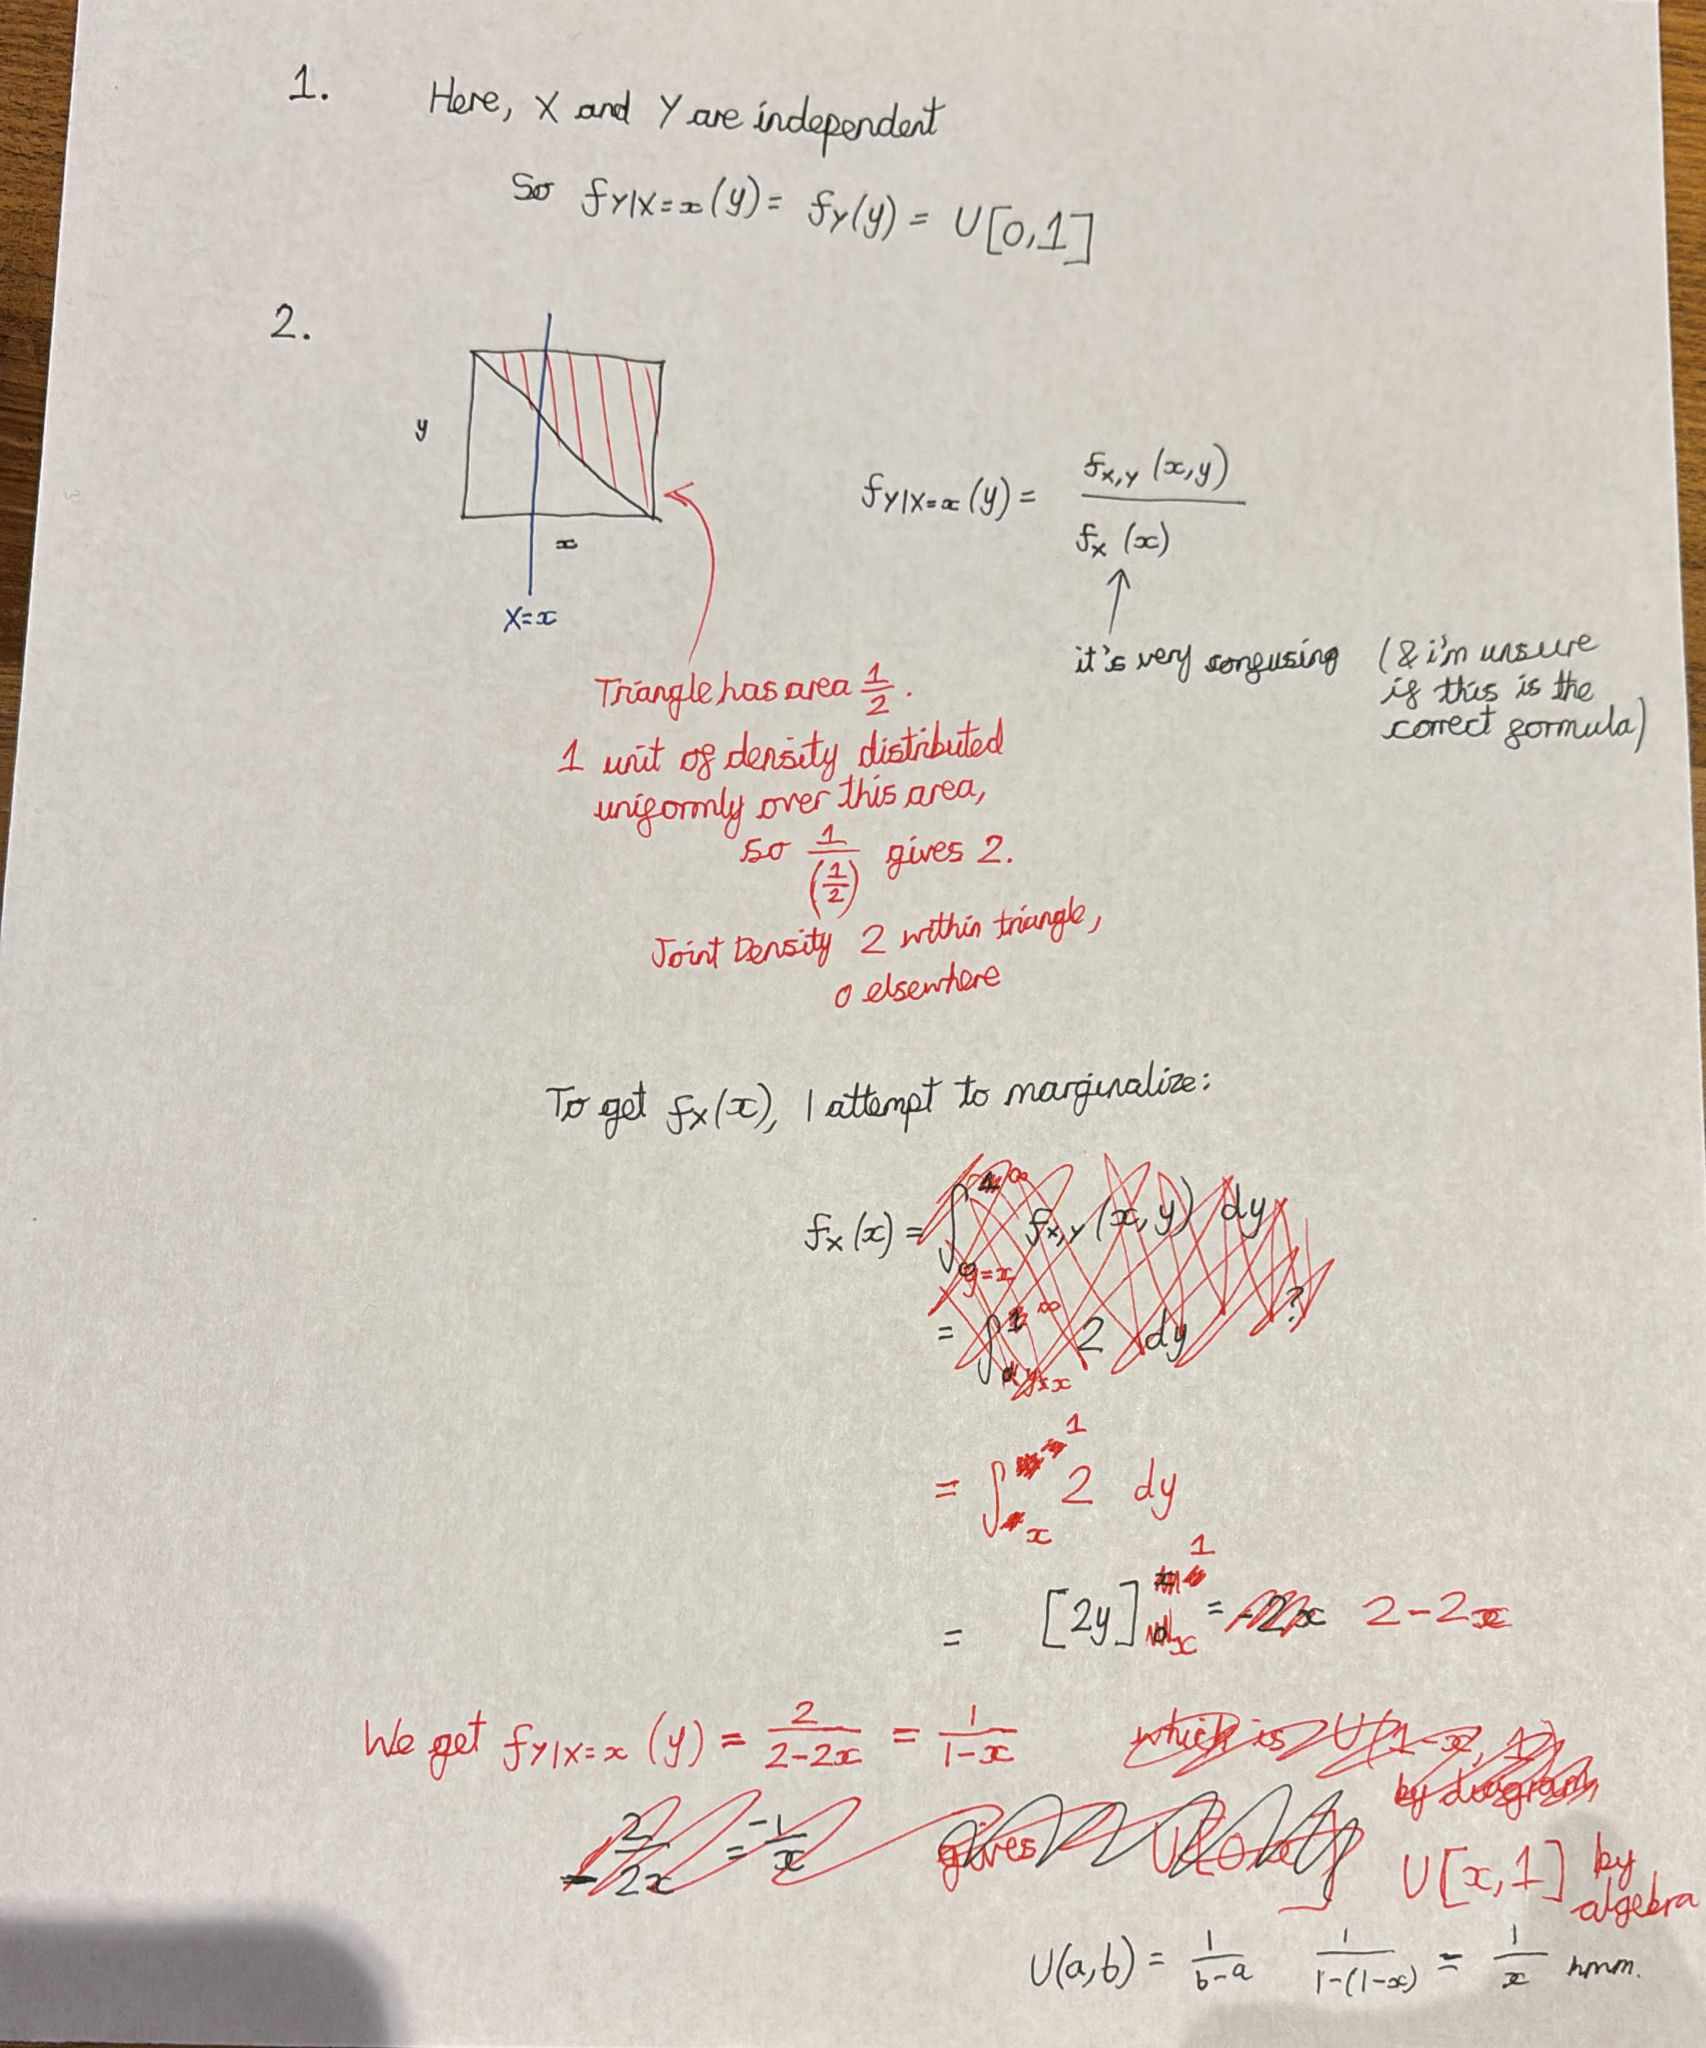 1. Here, X and Y are independent
So f_{Y|X=x}(y) = f_Y(y) = U[0,1]
2.
y
x
X=x
f_{Y|X=x}(y) = f_{X,Y}(x,y) / f_X(x)
it's very confusing (& i'm unsure
if this is the
correct formula)
Triangle has area 1/2.
1 unit of density distributed
uniformly over this area,
so 1/(1/2) gives 2.
Joint Density 2 within triangle,
0 elsewhere
To get f_X(x), I attempt to marginalize:
f_X(x) = ∫_{y=x}^{∞} f_{X,Y}(x,y) dy
= ∫_{y=x}^{∞} 2 dy ?
= ∫_x^1 2 dy
= [2y]_x^1 = -2x 2-2x
We get f_{Y|X=x}(y) = 2/(2-2x) = 1/(1-x) which is U(1-x, 1)
by diagram,
-2/2x = -1/x gives
U[x,1] by
algebra
U(a,b) = 1/(b-a) 1/(1-(1-x)) = 1/x hmm.